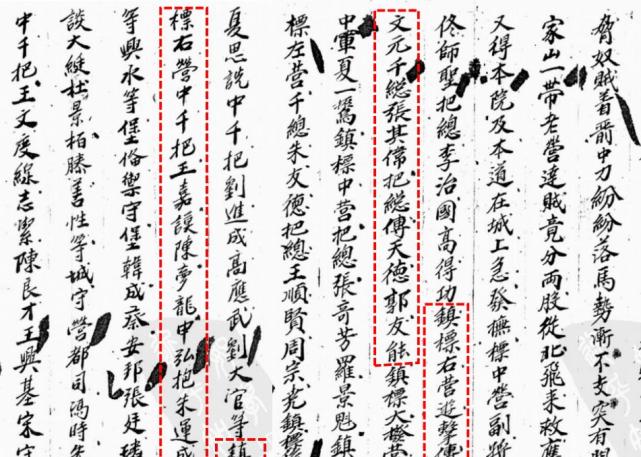 脅奴賊着箭中刀紛紛落馬勢漸不支突有
家山一帶老營達賊竟分兩股從北飛來救應
又得本院及本道在城上急發撫標中營副將
佟師聖把總李治國高得功鎮標右營遊擊傅
文元千總張其偉把總傅天德郭友能鎮標大
中軍夏一鶚鎮標中營把總張奇芳羅景魁鎮
標左營千總朱友德把總王順賢周宗堯鎮標
夏思說中千把劉進成高應武劉大官等鎮
標右營中千把王嘉謨陳夢龍申弘抱朱運成
等興水等堡俻禦守堡韓成蔡安邦張廷
談大綎杜景柏滕善性等城守營都司馮時
中千把王文度線志潔陳良才王興基宋守